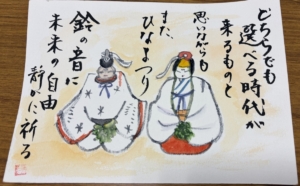 どちらでも
選べる時代が
来るものと
思いながらも
まだ、
ひなまつり
鈴の音に
未来の自由
静かに祈る